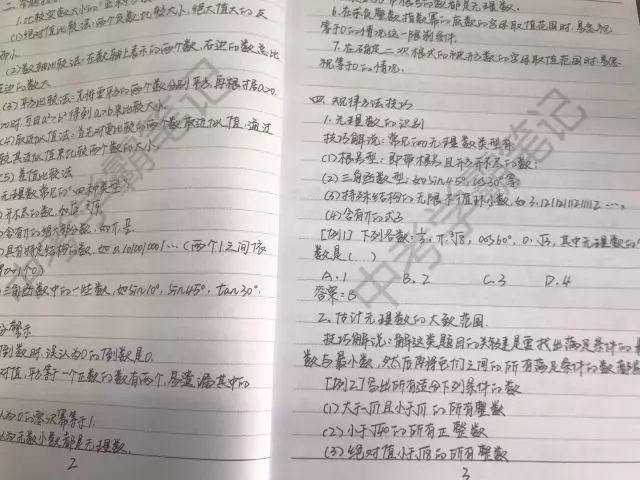 1.比较实数大小的
(1)绝对值比较法:两个负数比较大小,绝对值大的反
而小.
(2)数轴比较法:在数轴上表示的两个数,右边的数总比
左边的数大
(3)平方比较法:先将要比较的两个数分别平方,再根据a>0,
>0时,可由a²>b²得到a>b来比较大小.
(4)取近似值法:首先对要比较的两个数取近似值,通过
较其近似值来比较两个数的大小.
(5)差值比较法
无理数常见的四种类型
开不尽的数,如
含有π的绝大部分数,如
具有特定结构的数,如0.1010010001…(两个1之间依
三角函数中的一些数,如sin10°, sin45°, tan30°.
警示
倒数时,误认为0的倒数是0.
平方等于一个正数的数有两个,易遗漏其中的
为0的零次幂等于1.
为无数小数都是无理数.
2
带根号的数都是无理数.
6.在求负整数指数幂的底数的字母取值范围时,易忽视
等于0的情况这一限制条件.
7.在确定二次根式的被开方数的字母取值范围时,易忽
视等于0的情况.
四.规律方法技巧
1.无理数的识别
技巧解说:常见的无理数类型有
(1)根号型:即带根号且开方开不尽的数.
(2)三角函数型:如sin45°, cos30°等
(3)特殊结构的无限不循环小数,如3.121121112…,
(4)含有π的式子
[例1]下列各数:⅓, π, ∛8, cos60°, 0, √3,其中无理数的
数是( )
A.1 B.2 C.3 D.4
答案:B
2.估计无理数的大致范围.
技巧解说:解这类题目的关键是要找出满足条件的最
数与最小数,然后再将它们之间的所有满足条件的数都
[例2]写出所有适合下列条件的数
(1)大于 且小于 的所有整数
(2)小于 的所有正整数
(3)绝对值小于 的所有整数
3
中考学霸笔记